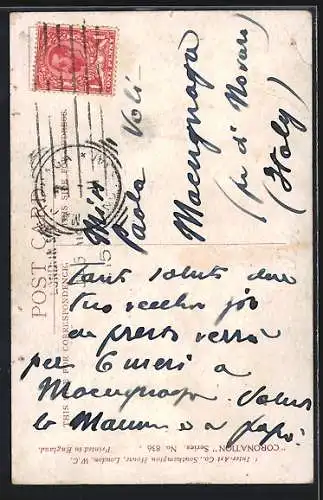 POST CARD
THIS SPACE FOR CORRESPONDENCE.
Miss
Paola Voli-
Macugnaga
(pr. d' Novara)
(Italy)
Tanti saluti dal
tuo vecchio
che presto verrà
per 6 mesi a
Macugnaga. Saluti
la Mamma e a papà.
Inter-Art Co., Southampton House, London, W.C.
"CORONATION" Series. No. 836. Printed in England.